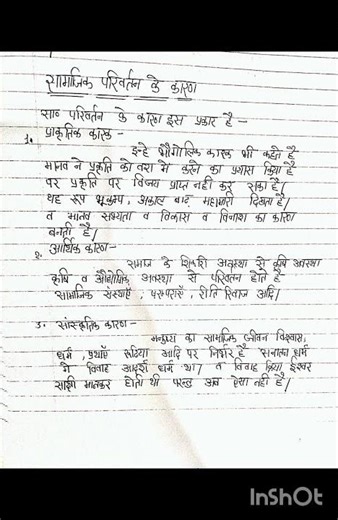 सामाजिक परिवर्तन के कारण
सा० परिवर्तन के कारण इस प्रकार है –
1. प्राकृतिक कारक –
इन्हे भौगोलिक कारक भी कहते है
मानव ने प्रकृति को वश में करने का प्रयास किया है
पर प्रकृति पर विजय प्राप्त नही कर सका है।
यह रूप भूकम्प, अकाल बाढ़ महामारी दिखता है
व मानव सभ्यता व विकास व विनाश का कारण
बनती है।
2. आर्थिक कारण –
समाज के शिकारी अवस्था से कृषि अवस्था
कृषि व औद्योगिक अवस्था से परिवर्तन होते है
सामाजिक संस्थाएँ, परम्पराएँ, रीति रिवाज आदि।
3. सांस्कृतिक कारण –
मनुष्य का सामाजिक जीवन विश्वास,
धर्म, प्रथाएँ रूढिया आदि पर निर्भर है सनातन धर्म
मे विवाह आदर्श धर्म था। व विवाह क्रिया ईश्वर
साक्षी मानकर होती थी परन्तु अब ऐसा नही है।
InShOt